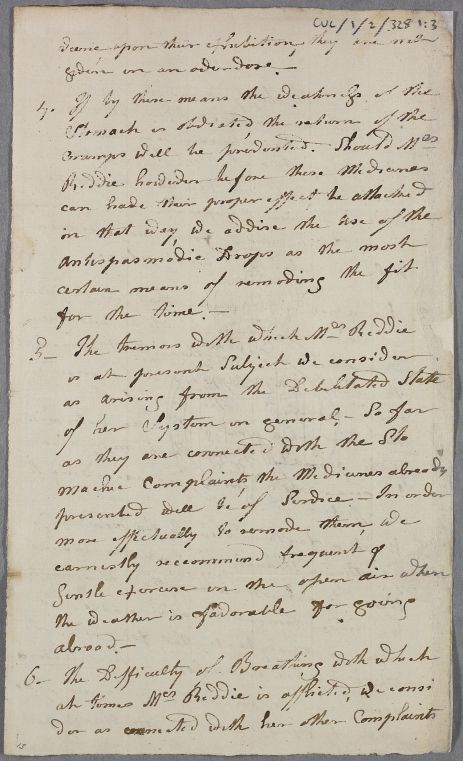 CUL/1/2/328 1:3
Scene upon their exhibition, they are not
given in an overdose. —
4. If by these means the weakness of the
Stomach is obviated the return of the
Cramps will be prevented. Should Mrs
Reddie however before these Medicines
can have their proper effect be attacked
in that way, we advise the use of the
Antispasmodic Drops as the most
certain means of removing the fit
for the time. —
5 — The tremors with which Mrs Reddie
is at present Subject we consider
as arising from the Debilitated State
of her System in general, — So far
as they are connected with the Sto
machic Complaints the Medicines already
presented will be of Service — In order
more effectually to remove them, we
earnestly reccommend frequent &
Gentle exercise in the open air when
the weather is favorable for going
abroad. —
6 — The Difficulty of Breathing with which
at times Mrs Reddie is afflicted, we consi
der as connected with her other Complaints